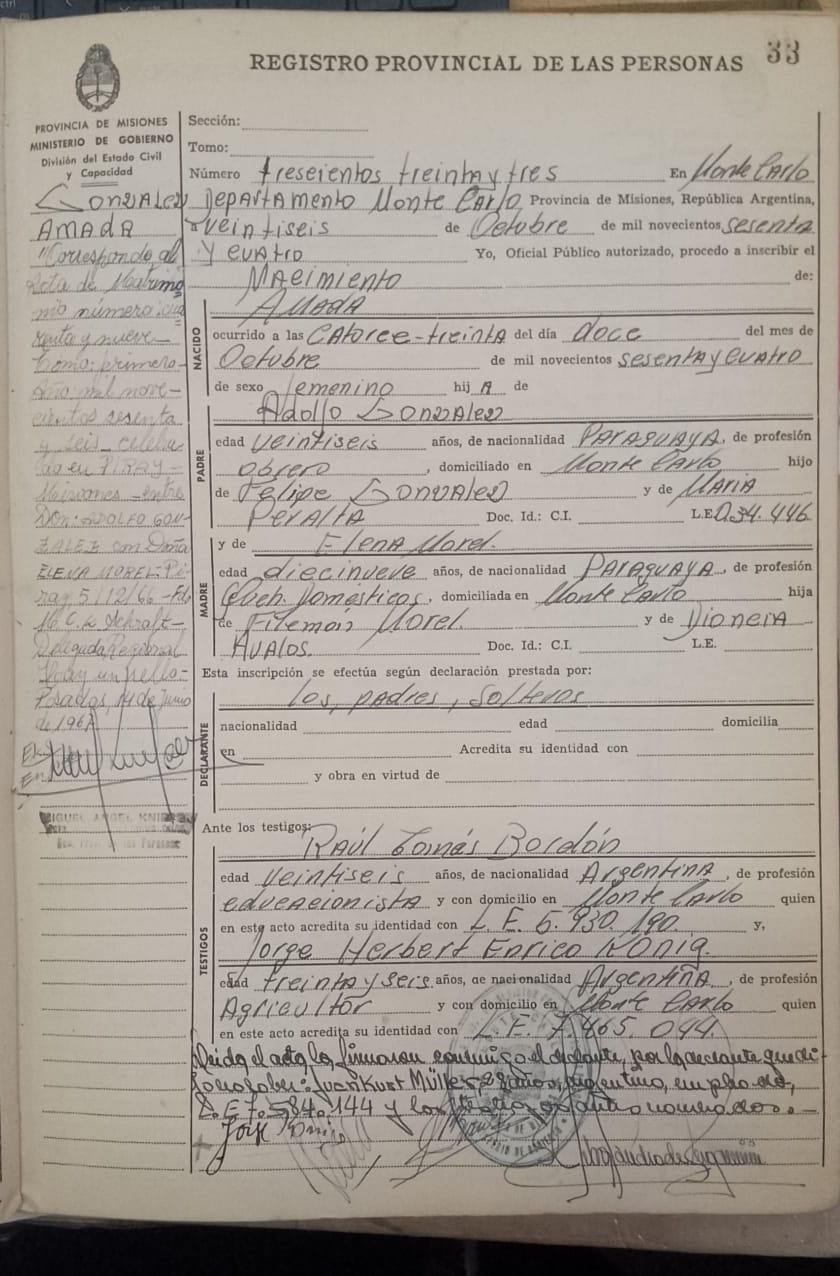 REGISTRO PROVINCIAL DE LAS PERSONAS
33
PROVINCIA DE MISIONES
MINISTERIO DE GOBIERNO
División del Estado Civil
y Capacidad
GONZALEZ
AMADA
"Corresponde al
Acta de Matrimo
nio número: cua
renta y nueve
Tomo: primero-
Año: mil nove-
cientos sesenta
y seis celebra
do en PIRAY-
Misiones - entre
Don: ADOLFO GON-
ZALEZ con Doña
ELENA MOREL-Pi-
ray 5/12/66-Fdo
M. C. de Schraft-
Delegada Regional
Hay un sello:-
Posadas, 14 de Junio
de 196
MIGUEL ANGEL
Sección:
Tomo:
Número treseientos treinta y tres En Monte Carlo
Departamento Monte Carlo, Provincia de Misiones, República Argentina,
a veintiseis de Octubre de mil novecientos sesenta
y cuatro Yo, Oficial Público autorizado, procedo a inscribir el
Nacimiento de:
NACIDO
Amada
ocurrido a las catorce-treinta del día doce del mes de
Octubre de mil novecientos sesenta y cuatro
de sexo femenino hij a de
PADRE
Adolfo Gonzalez
edad veintiseis años, de nacionalidad PARAGUAYA, de profesión
obrero, domiciliado en Monte Carlo hijo
de Felipe Gonzalez y de MARIA
PERALTA Doc. Id.: C.I. L.E. 034.446
MADRE
y de Elena Morel.
edad diecinueve años, de nacionalidad PARAGUAYA, de profesión
Queh. Domésticos, domiciliada en Monte Carlo hija
de Filemón Morel. y de Dioncia
Avalos. Doc. Id.: C.I. L.E.
Esta inscripción se efectúa según declaración prestada por:
DECLARANTE
los, padres, solteros
nacionalidad edad domicilia
en Acredita su identidad con
y obra en virtud de
Ante los testigos:
TESTIGOS
Raúl Tomás Bordón
edad veintiseis años, de nacionalidad Argentina, de profesión
educacionista y con domicilio en Monte Carlo quien
en este acto acredita su identidad con L. E. 6.930.190. y,
Jorge Herbert Enrico König.
edad treinta y seis años, de nacionalidad Argentina, de profesión
Agricultor y con domicilio en Monte Carlo quien
en este acto acredita su identidad con L. E. 7.465.044.
Leido el acta la firmaron conmigo el declarante, por la declarante que di-
jo no saber: Juan Kurt Müller 28 años, argentino, empleado,
L. E 7.584.144 y los testigos antes nombrados.-